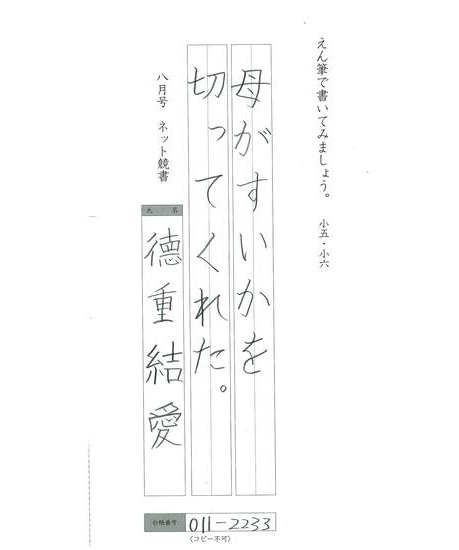 えん筆で書いてみましょう。 小五・小六
母がすいかを
切ってくれた。
八月号 ネット競書
氏名
德重結愛
台紙番号 011-2233
(コピー不可)